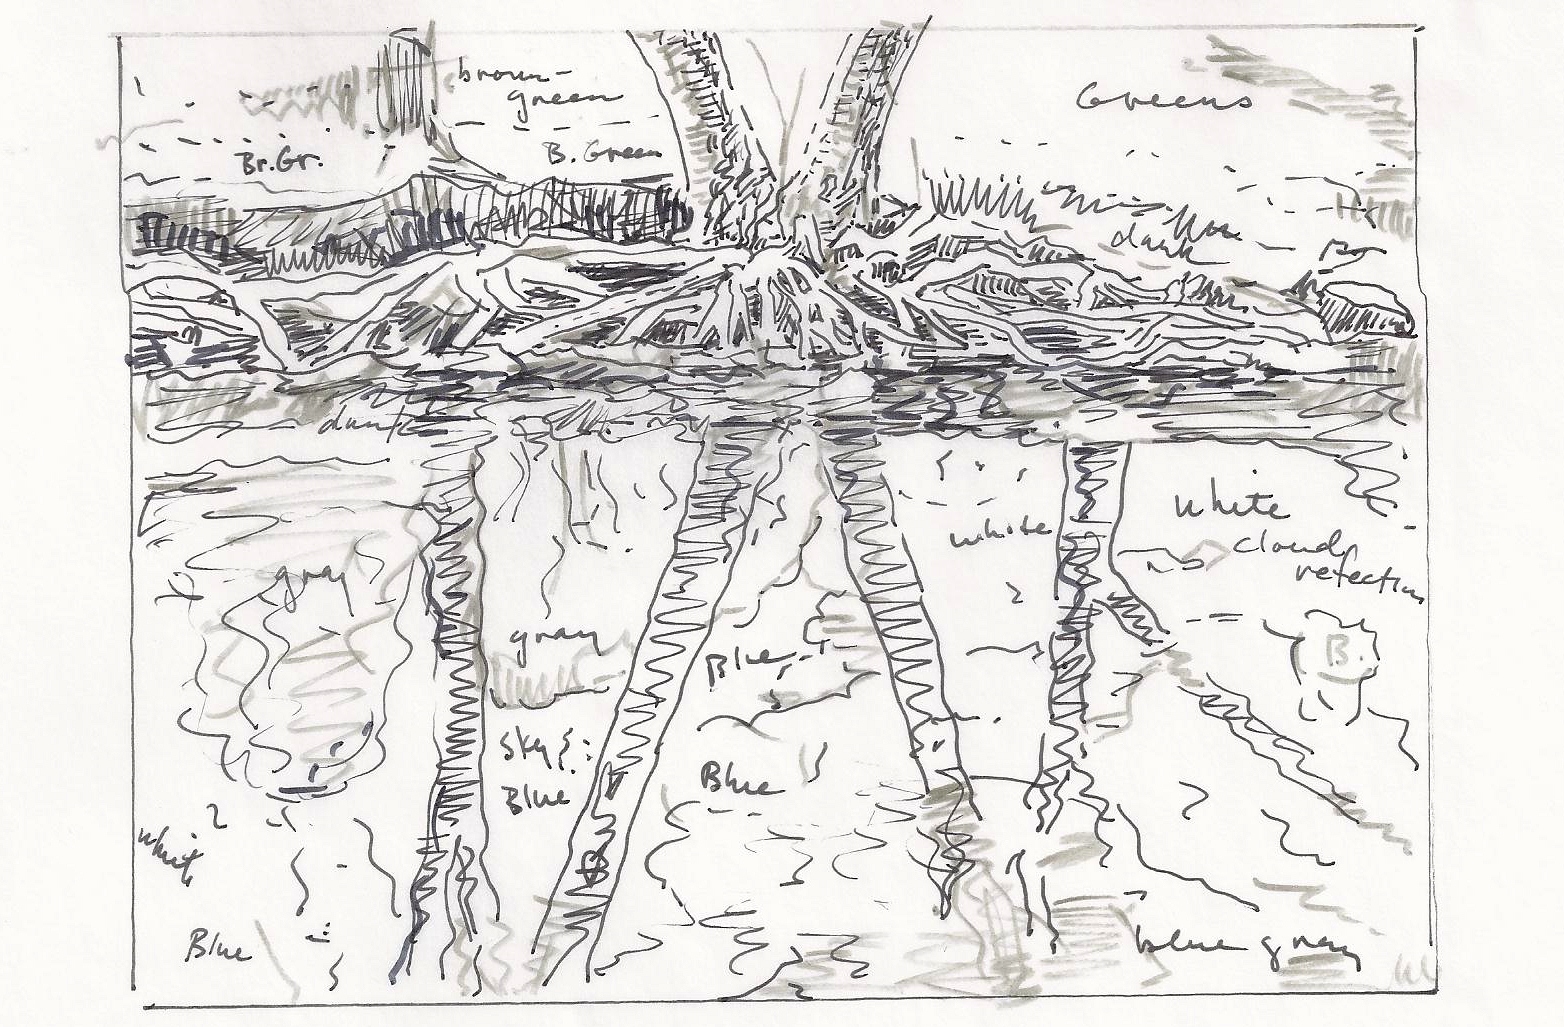 brown-
green
Greens
Br.Gr.
B. Green
dark
dark
white
white
cloud
refection
gray
gray
B.
Blue
sky &
Blue
Blue
whit
Blue
blue gray